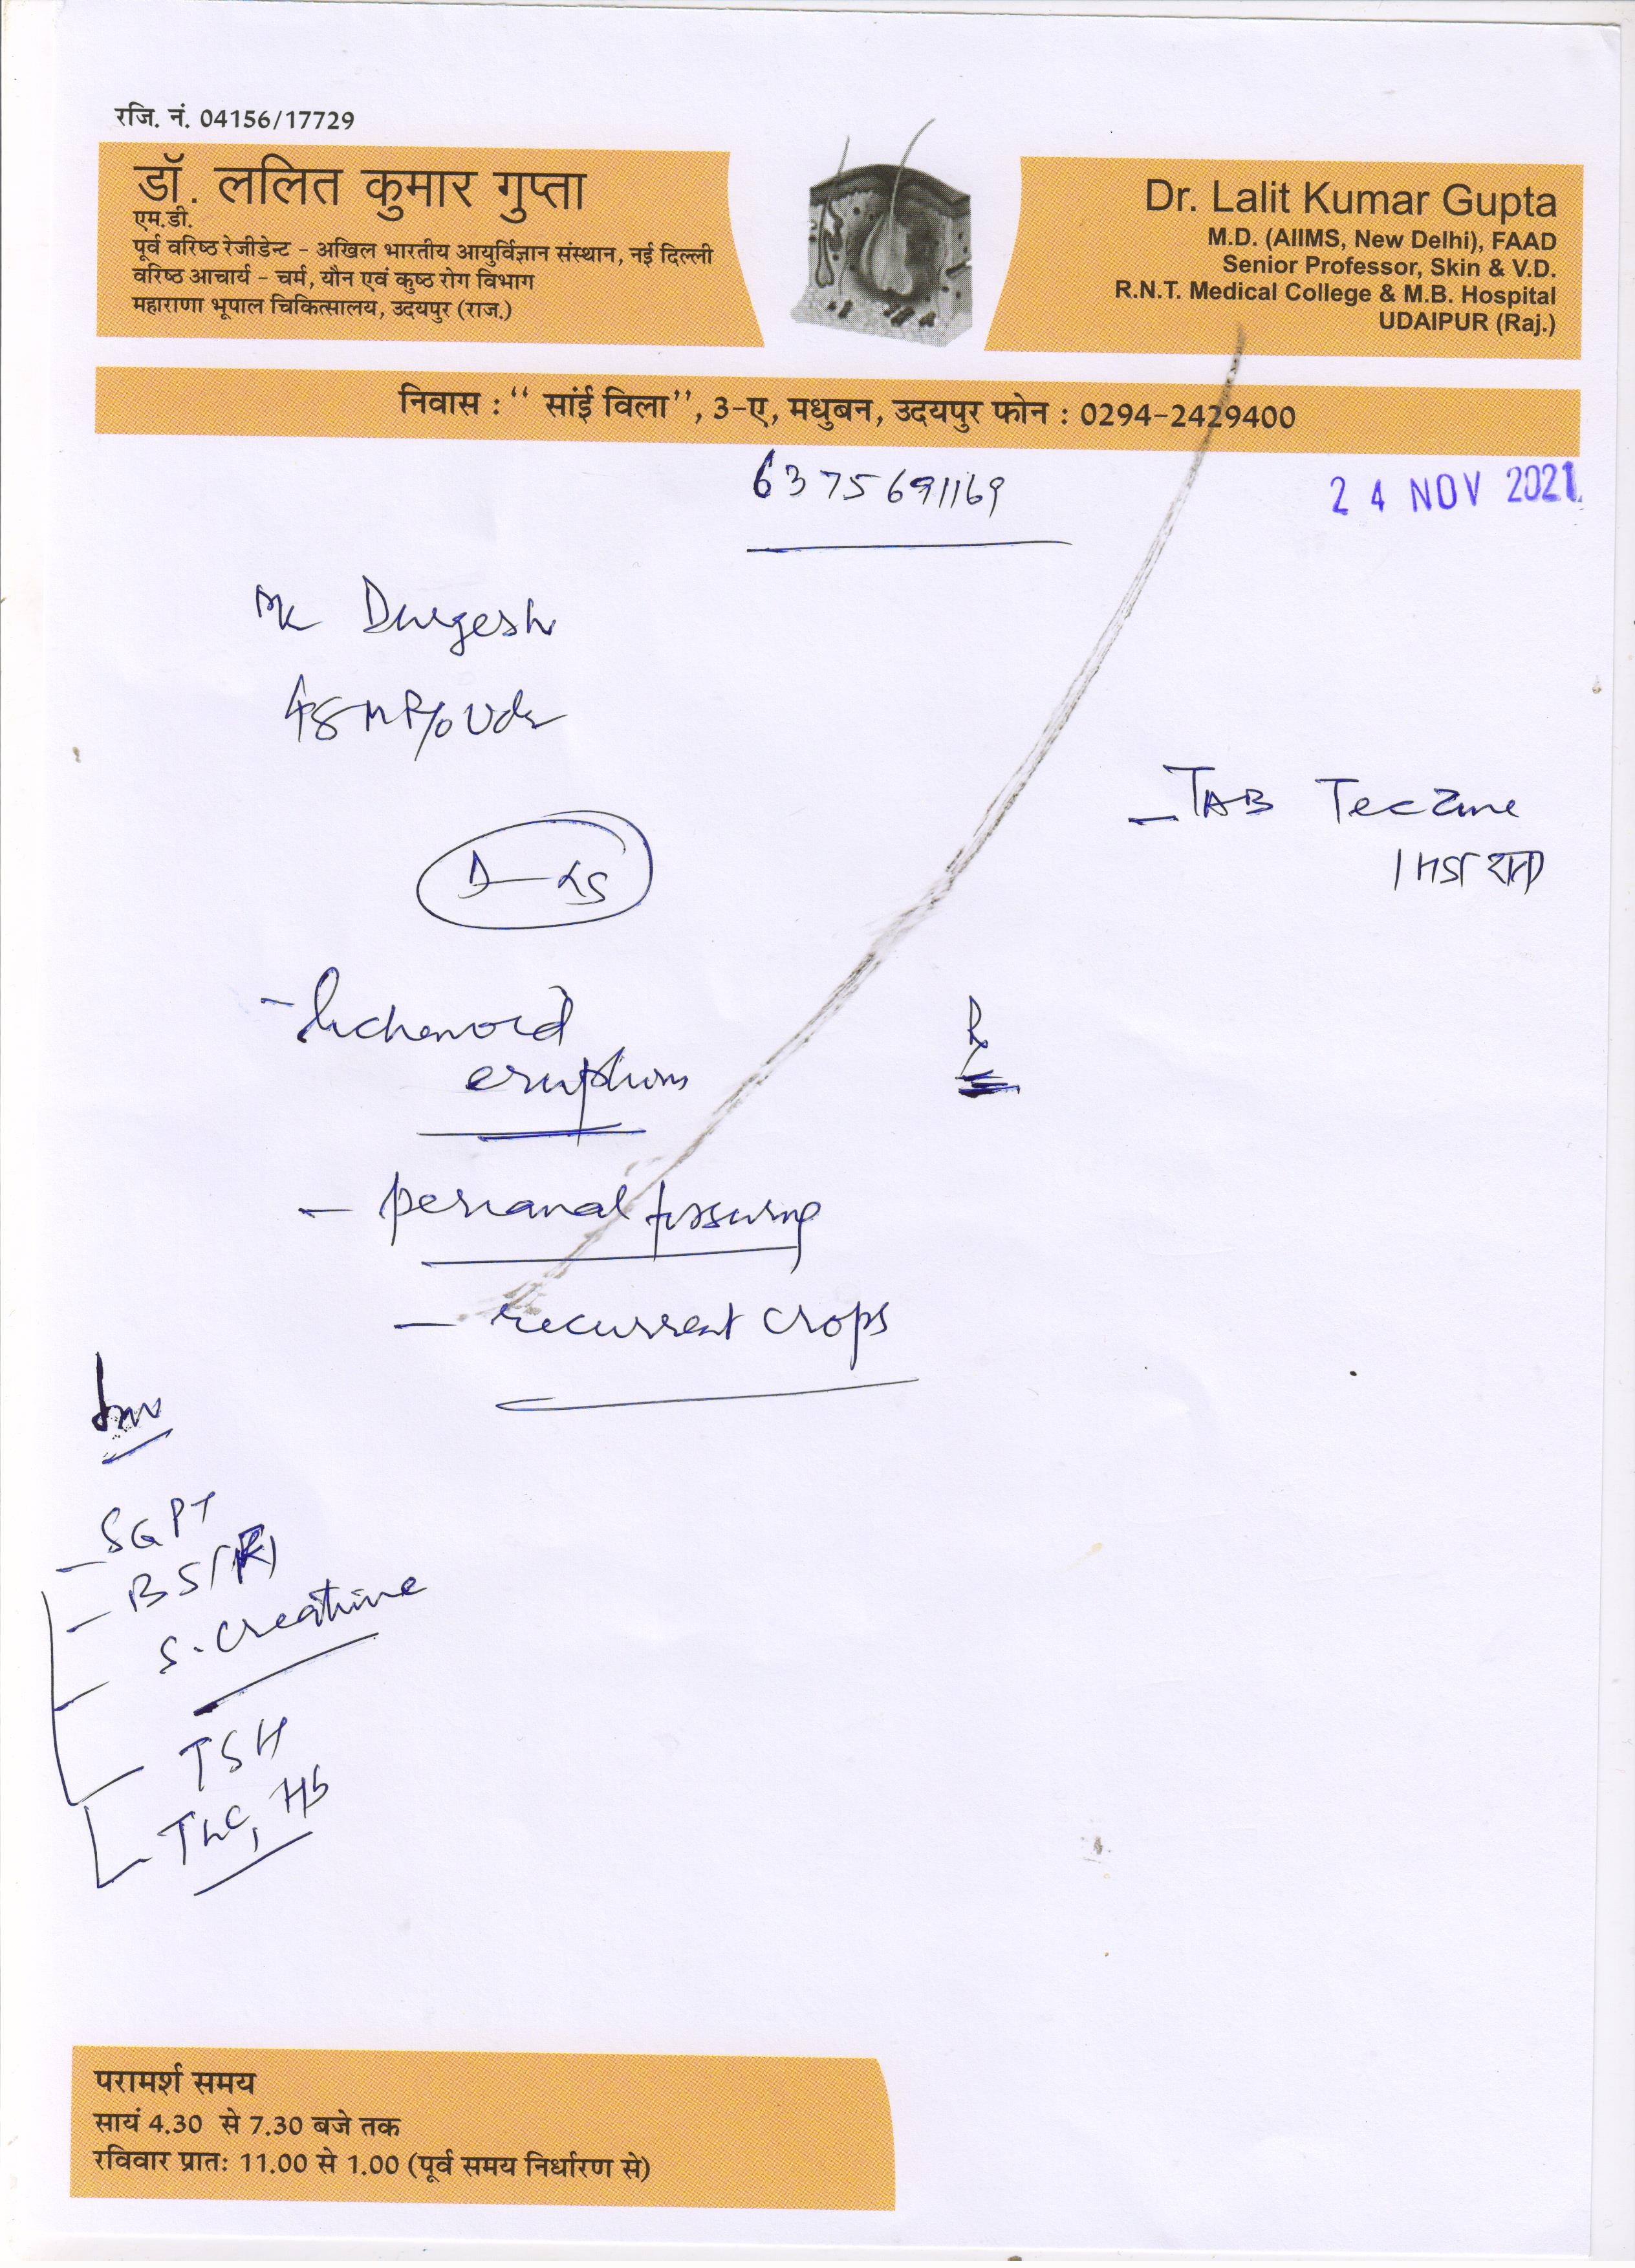 रजि. नं. 04156/17729
डॉ. ललित कुमार गुप्ता
एम.डी.
पूर्व वरिष्ठ रेजीडेन्ट - अखिल भारतीय आयुर्विज्ञान संस्थान, नई दिल्ली
वरिष्ठ आचार्य - चर्म, यौन एवं कुष्ठ रोग विभाग
महाराणा भूपाल चिकित्सालय, उदयपुर (राज.)
Dr. Lalit Kumar Gupta
M.D. (AIIMS, New Delhi), FAAD
Senior Professor, Skin & V.D.
R.N.T. Medical College & M.B. Hospital
UDAIPUR (Raj.)
निवास : “ सांई विला”, 3-ए, मधुबन, उदयपुर फोन : 0294-2429400
6375691169
24 NOV 2021
Mr Durgesh
48 M R/o Udr
- TAB Teczine
- lichenoid
eruptions
Rx
- perianal fissuring
- recurrent crops
Inv
- SGPT
- BS(R)
- S. Creatinine
TSH
TLC, Hb
परामर्श समय
सायं 4.30 से 7.30 बजे तक
रविवार प्रातः 11.00 से 1.00 (पूर्व समय निर्धारण से)